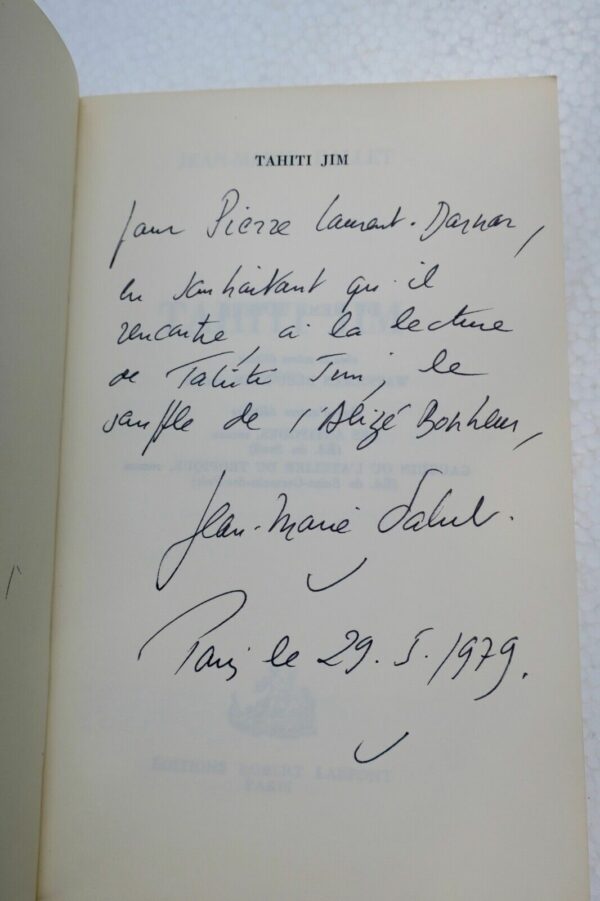 TAHITI JIM
Pour Pierre Laurent-Darnar,
en souhaitant qu'il
rencontre, à la lecture
de Tahiti Jim, le
souffle de l'Alizé Bonheur,
Jean-Marie Dallet.
Paris le 29.5.1979.
EDITIONS ROBERT LAFFONT
PARIS